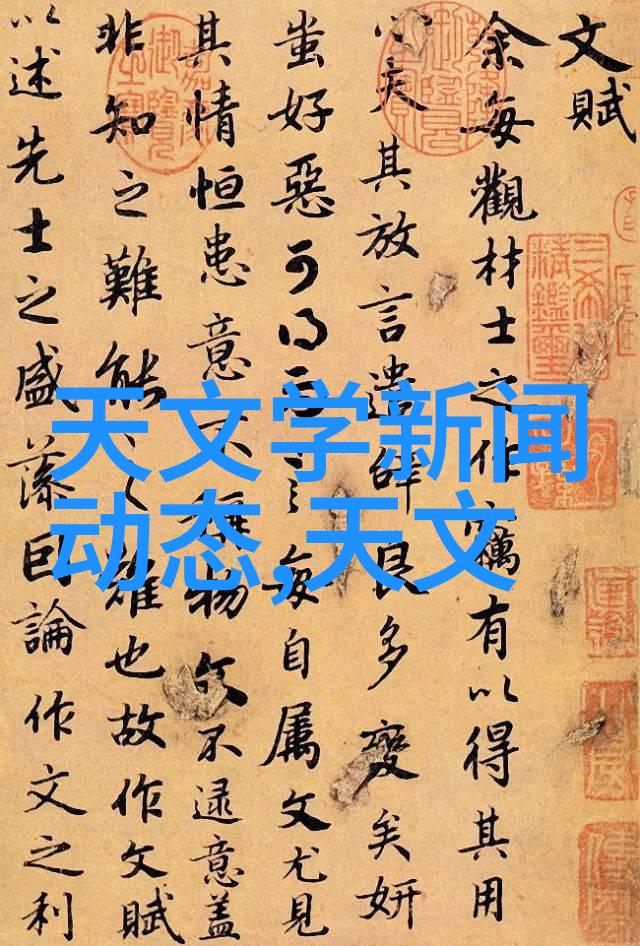 文賦
余每觀材士之作竊有以得其用
心夫其放言遣辭良多變矣妍
蚩好惡可得而言每自属文尤見
其情恒患意不稱物文不逮意盖
非知之難能之難也故作文賦
以述先士之盛藻因論作文之利
天文学新闻
动态,天文